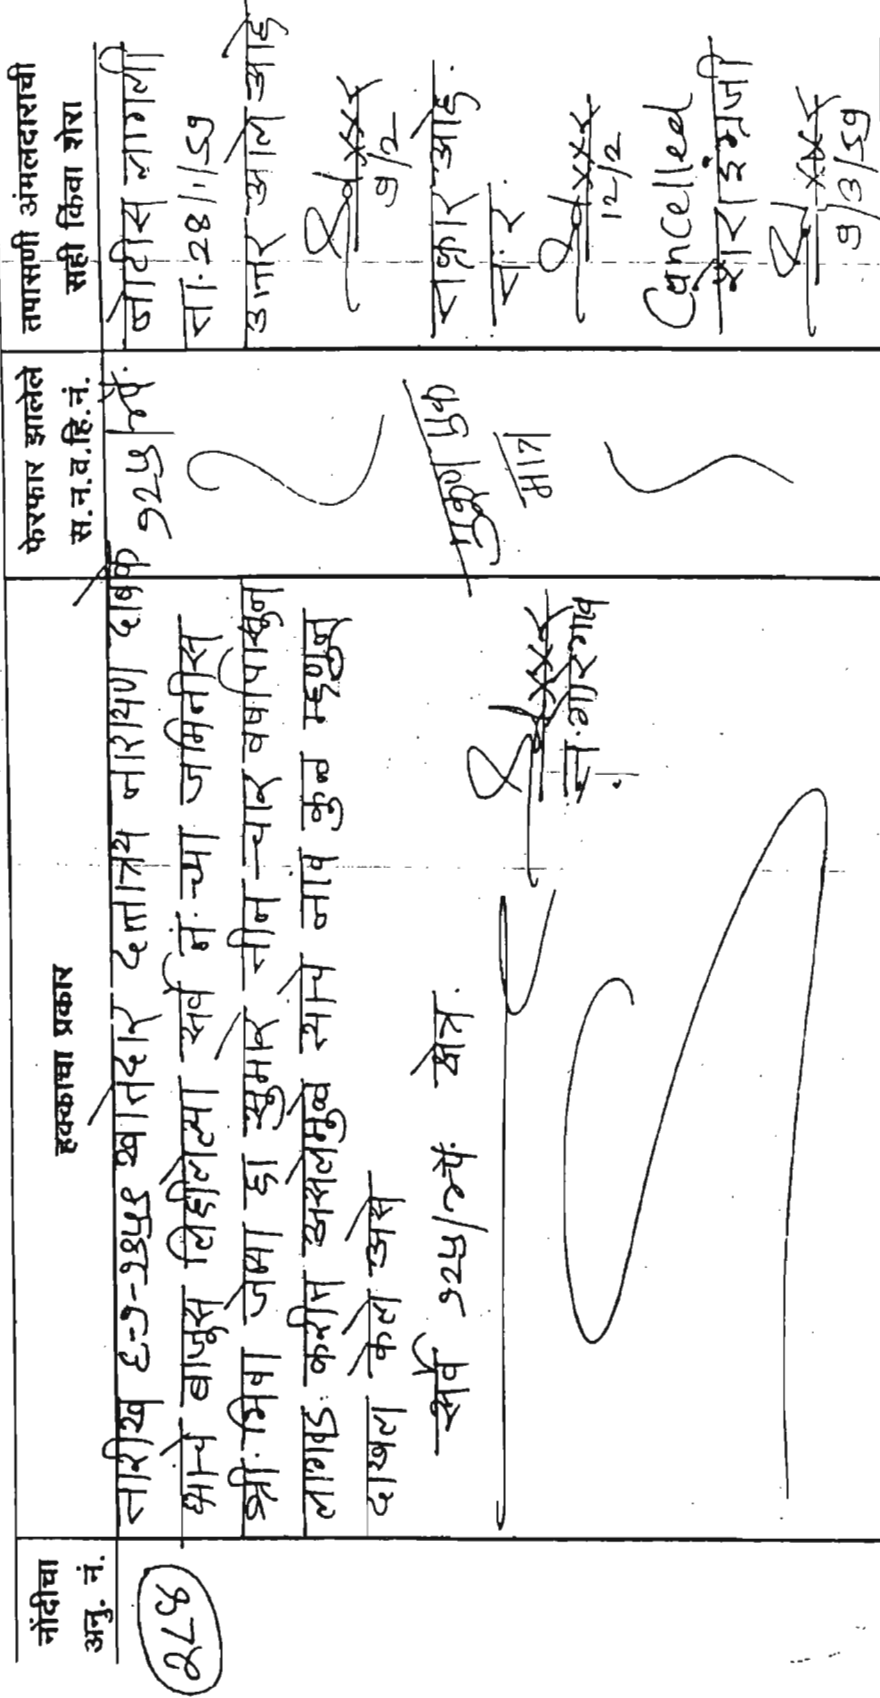 नोंदीचा
अनु. नं.
हक्काचा प्रकार
फेरफार झालेले
स.न.व.हि.नं.
तपासणी अंमलदाराची
सही किंवा शेरा
२८४
तारीख ६-१-१९५९ खातेदार दत्तात्रय नारायण दाबके
यांचे बाजुस लिहीलेल्या सर्व नं. च्या जमिनीस
श्री. भिवा जेमा हा सुमारे तीन चार वर्षापासुन
लागवड करीत असलेमुळे याचे नाव कुळ म्हणुन
दाखल केले असे
सर्वे १२५/२पै. क्षेत्र.
Sdxxx
त.
१२५/२पै.
एकुण एक
मात्र
नोटीस लागली
ता. 28/1/59
उत्तर आले आहे
Sdxxx
9/2
तक्रार आहे.
त. र.
Sdxxx
12/2
Cancelled
शेरा इंग्रजी
Sdxxx
9/3/59